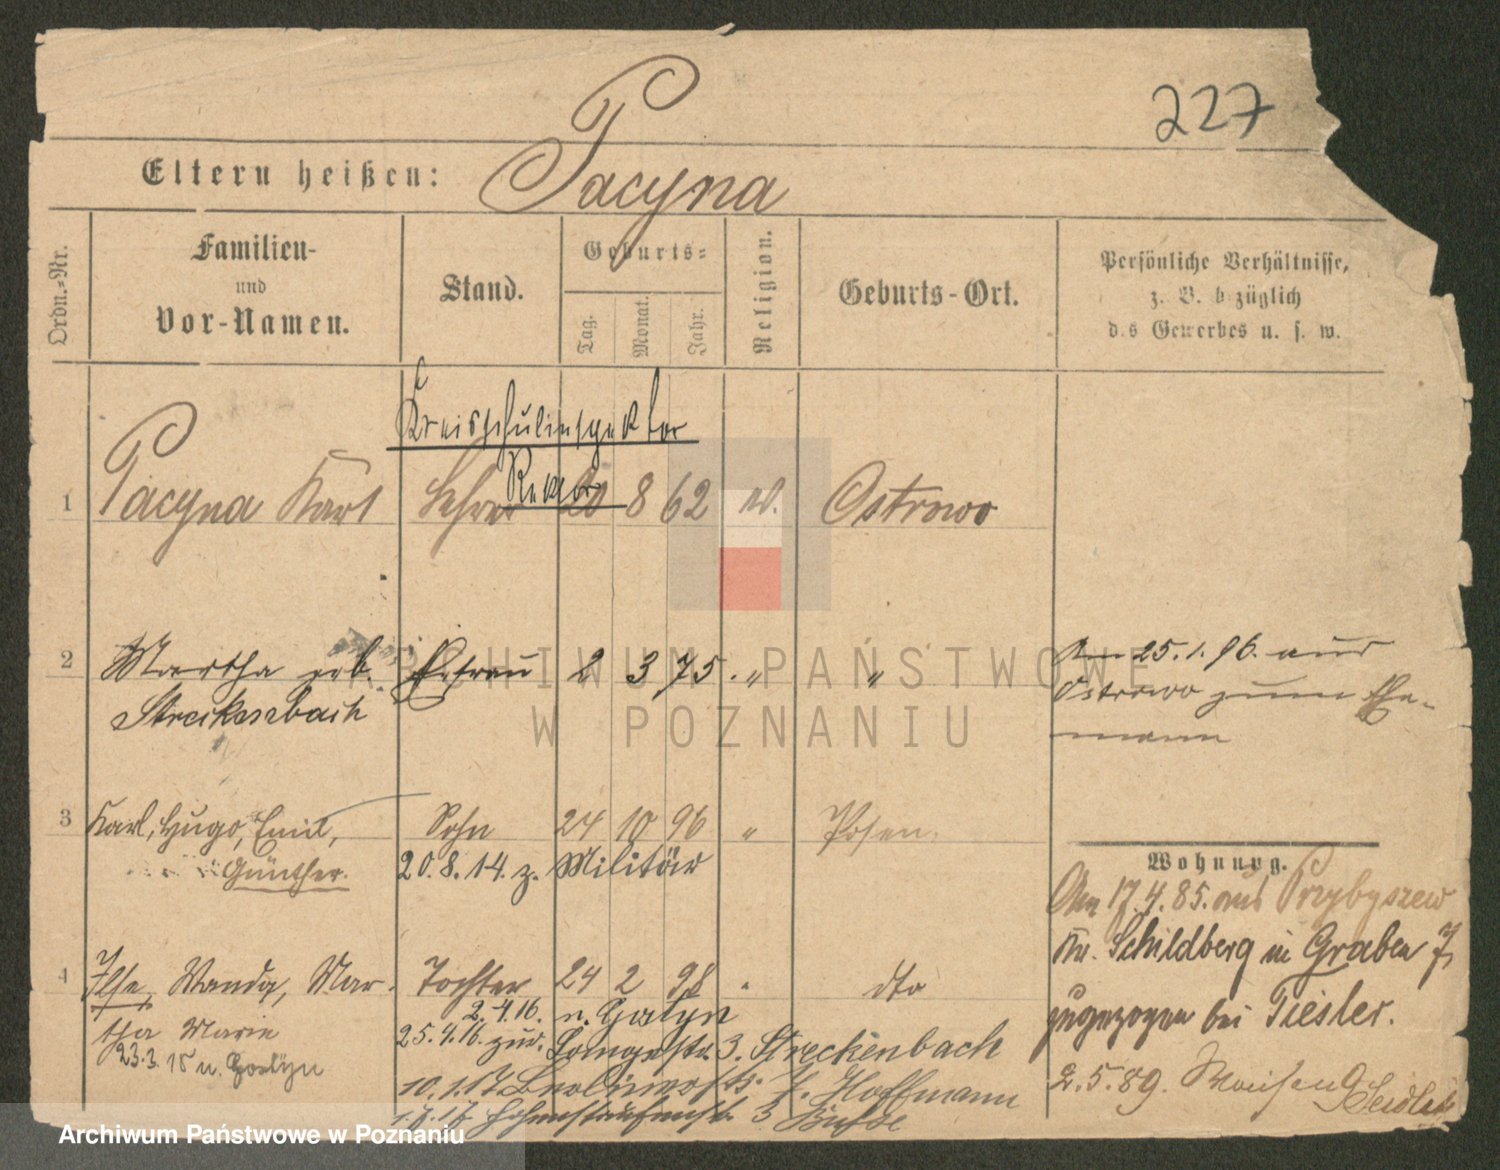 227
Eltern heißen: Pacyna
Ordn.-Nr.
Familien-
und
Vor-Namen.
Stand.
Geburts-
Tag.
Monat.
Jahr.
Religion.
Geburts-Ort.
Persönliche Verhältnisse,
z. B. b züglich
d.s Gewerbes u. s. w.
Kreisschulinspektor
Rektor
1 Pacyna Karl Lehrer 20 8 62 Ostrowo
2 Martha geb. Ehefrau 2 3 75. " "
Streckenbach
Am 25.1.96. aus
Ostrowo zum Ehe-
mann
3 Karl, Hugo, Emil, Sohn 24 10 96 " Posen.
Günther. 20.8.14. z. Militär
Wohnung.
Am 17.4.85. aus Przybyszew
Kr. Schildberg in Graben 7,
zugezogen bei Tiesler.
2.5.89.
4 Ilse, Wanda, Mar- Tochter 24 2 98 " dto
tha Marie 2.4.16. n.
23.3.15 n. 25.4.16. zur. 3. Streckenbach
10.1.17 Hoffmann
Hohenstaufenstr. 3
ARCHIWUM PAŃSTWOWE
W POZNANIU
Archiwum Państwowe w Poznaniu